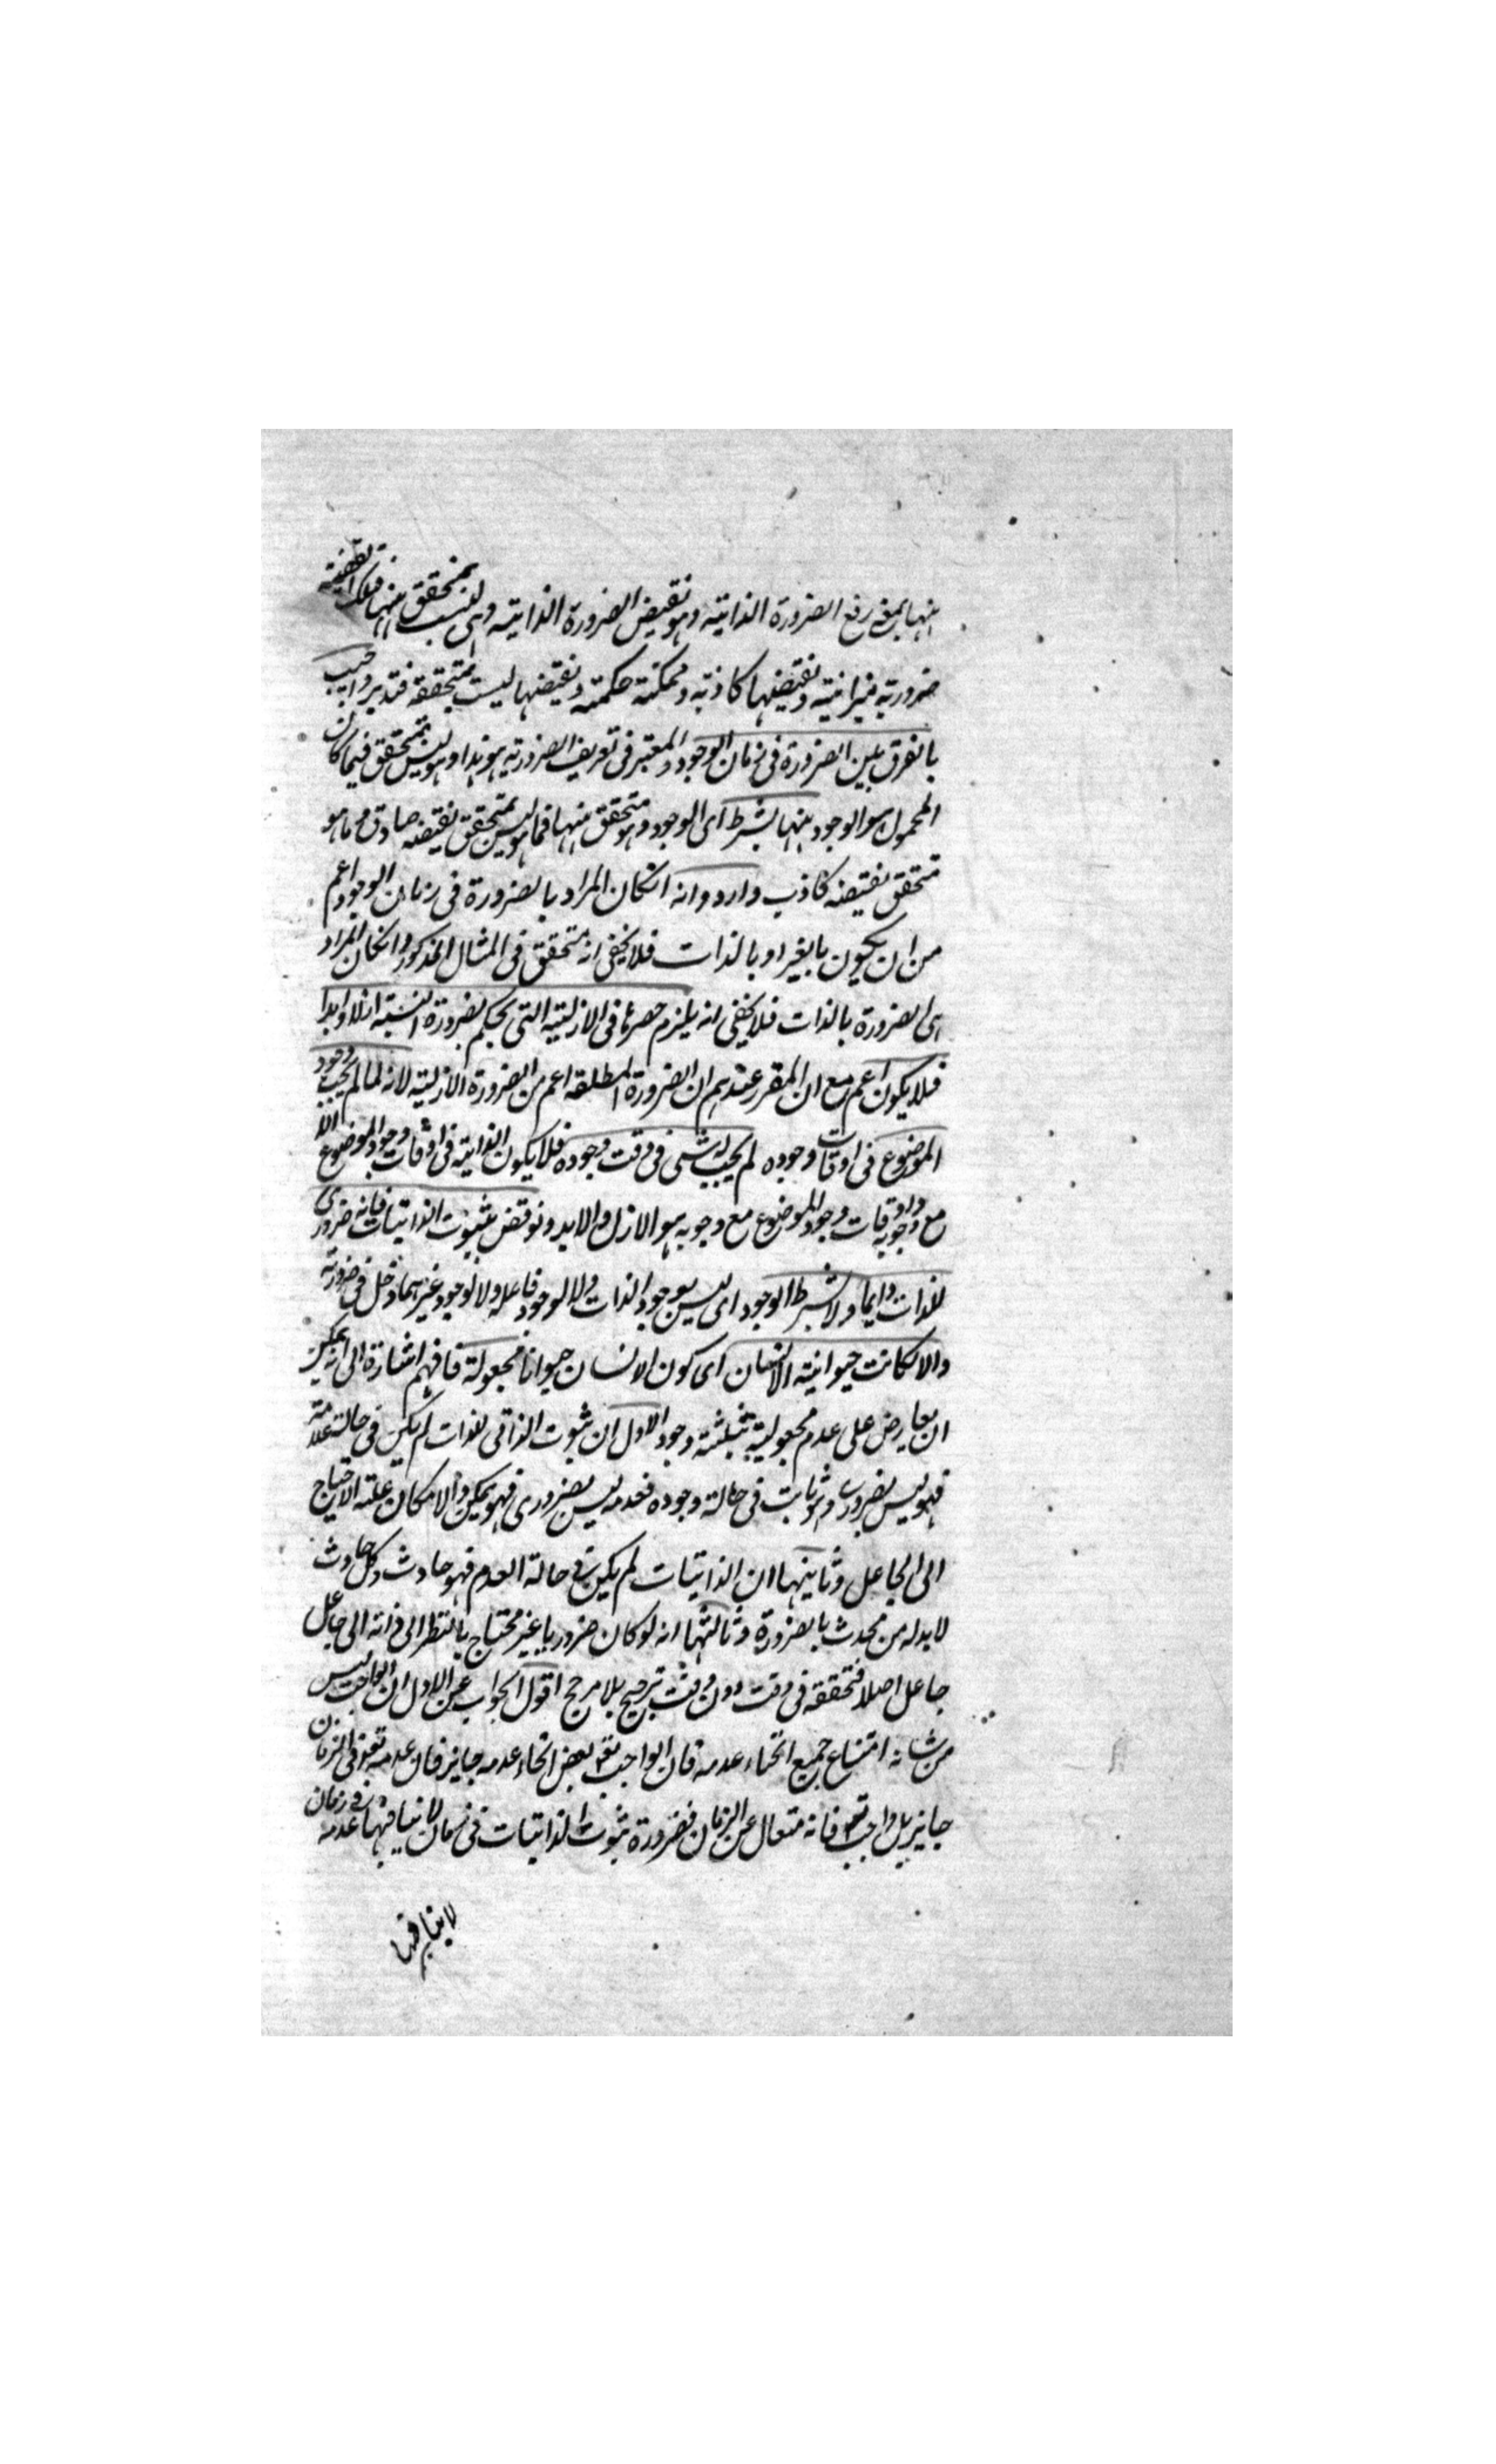 منها بمعنى رفع الضرورة الذاتية وهو نقيض الضرورة الذاتية وهى ليست بمتحققة منها فتلك القضية
ضرورية ميزانية ونقيضها كاذبة وممكنة حكمية ونقيضها ليست بمتحققة فتدبر واجيب
بالفرق بين الضرورة فى زمان الوجود والمعتبر فى تعريف الضرورية هو هذا وهو ليس بمتحقق فيما كان
المحمول هو الوجود منها بشرط اى الوجود وهو متحقق منها فما هو ليس بمتحقق نقيضه صادق وما هو
متحقق نقيضه كاذب وارد وانه انكان المراد بالضرورة فى زمان الوجود اعم
من ان يكون بالغير او بالذات فلا يخفى انه متحقق فى المثال المذكور وانكان المراد
هى الضرورة بالذات فلا يخفى انه يلزم حصرها فى الازلية التى يحكم بضرورة النسبة ازلا وابدا
فلا يكون اعم مع ان المقرر عندهم ان الضرورة المطلقة اعم من الضرورة الازلية لانه لما لم يجب وجود
الموضوع فى اوقات وجوده لم يجب له شئ فى وقت وجوده فلا يكون الذاتية فى اوقات وجود الموضوع الا
مع وجوبه واوقات وجود الموضوع مع وجوبه هو الازل والابد ونوقض بثبوت الذاتيات فانه ضرورى
للذات دايما ولا بشرط الوجود اى ليس بوجود الذات ولا لوجود فاعله ولا لوجود غيرهما دخل فى ضرورته
والا لكانت حيوانية الانسان اى كون الانسان حيوانا مجعولة فافهم اشارة الى انه يمكن
ان يعارض على عدم مجعولية بثلثة وجوه الاول ان ثبوت الذاتى للذات لم يكن فى حالة عدمه
فهو ليس بضرورى وثابت فى حالة وجوده فعدمه ليس بضرورى فهو ممكن والامكان علة الاحتياج
الى الجاعل وثانيها ان الذاتيات لم يكن فى حالة العدم فهو حادث وكل حادث
لا بد له من محدث بالضرورة وثالثها انه لو كان ضروريا غير محتاج بالنظر الى ذاته الى جاعل
جاعل اصلا فتحققه فى وقت دون وقت ترجيح بلا مرجح اقول الجواب عن الاول ان الواجب ليس
من شانه امتناع جميع انحاء عدمه فان الواجب تعه بعض انحاء عدمه جايز فان عدمه تعه فى الزمان
جايز بل واجب تعه فانه متعال عن الزمان فضرورة ثبوت الذاتيات فى زمان لا ينافيها عدمه فى زمان
لا ينافيها